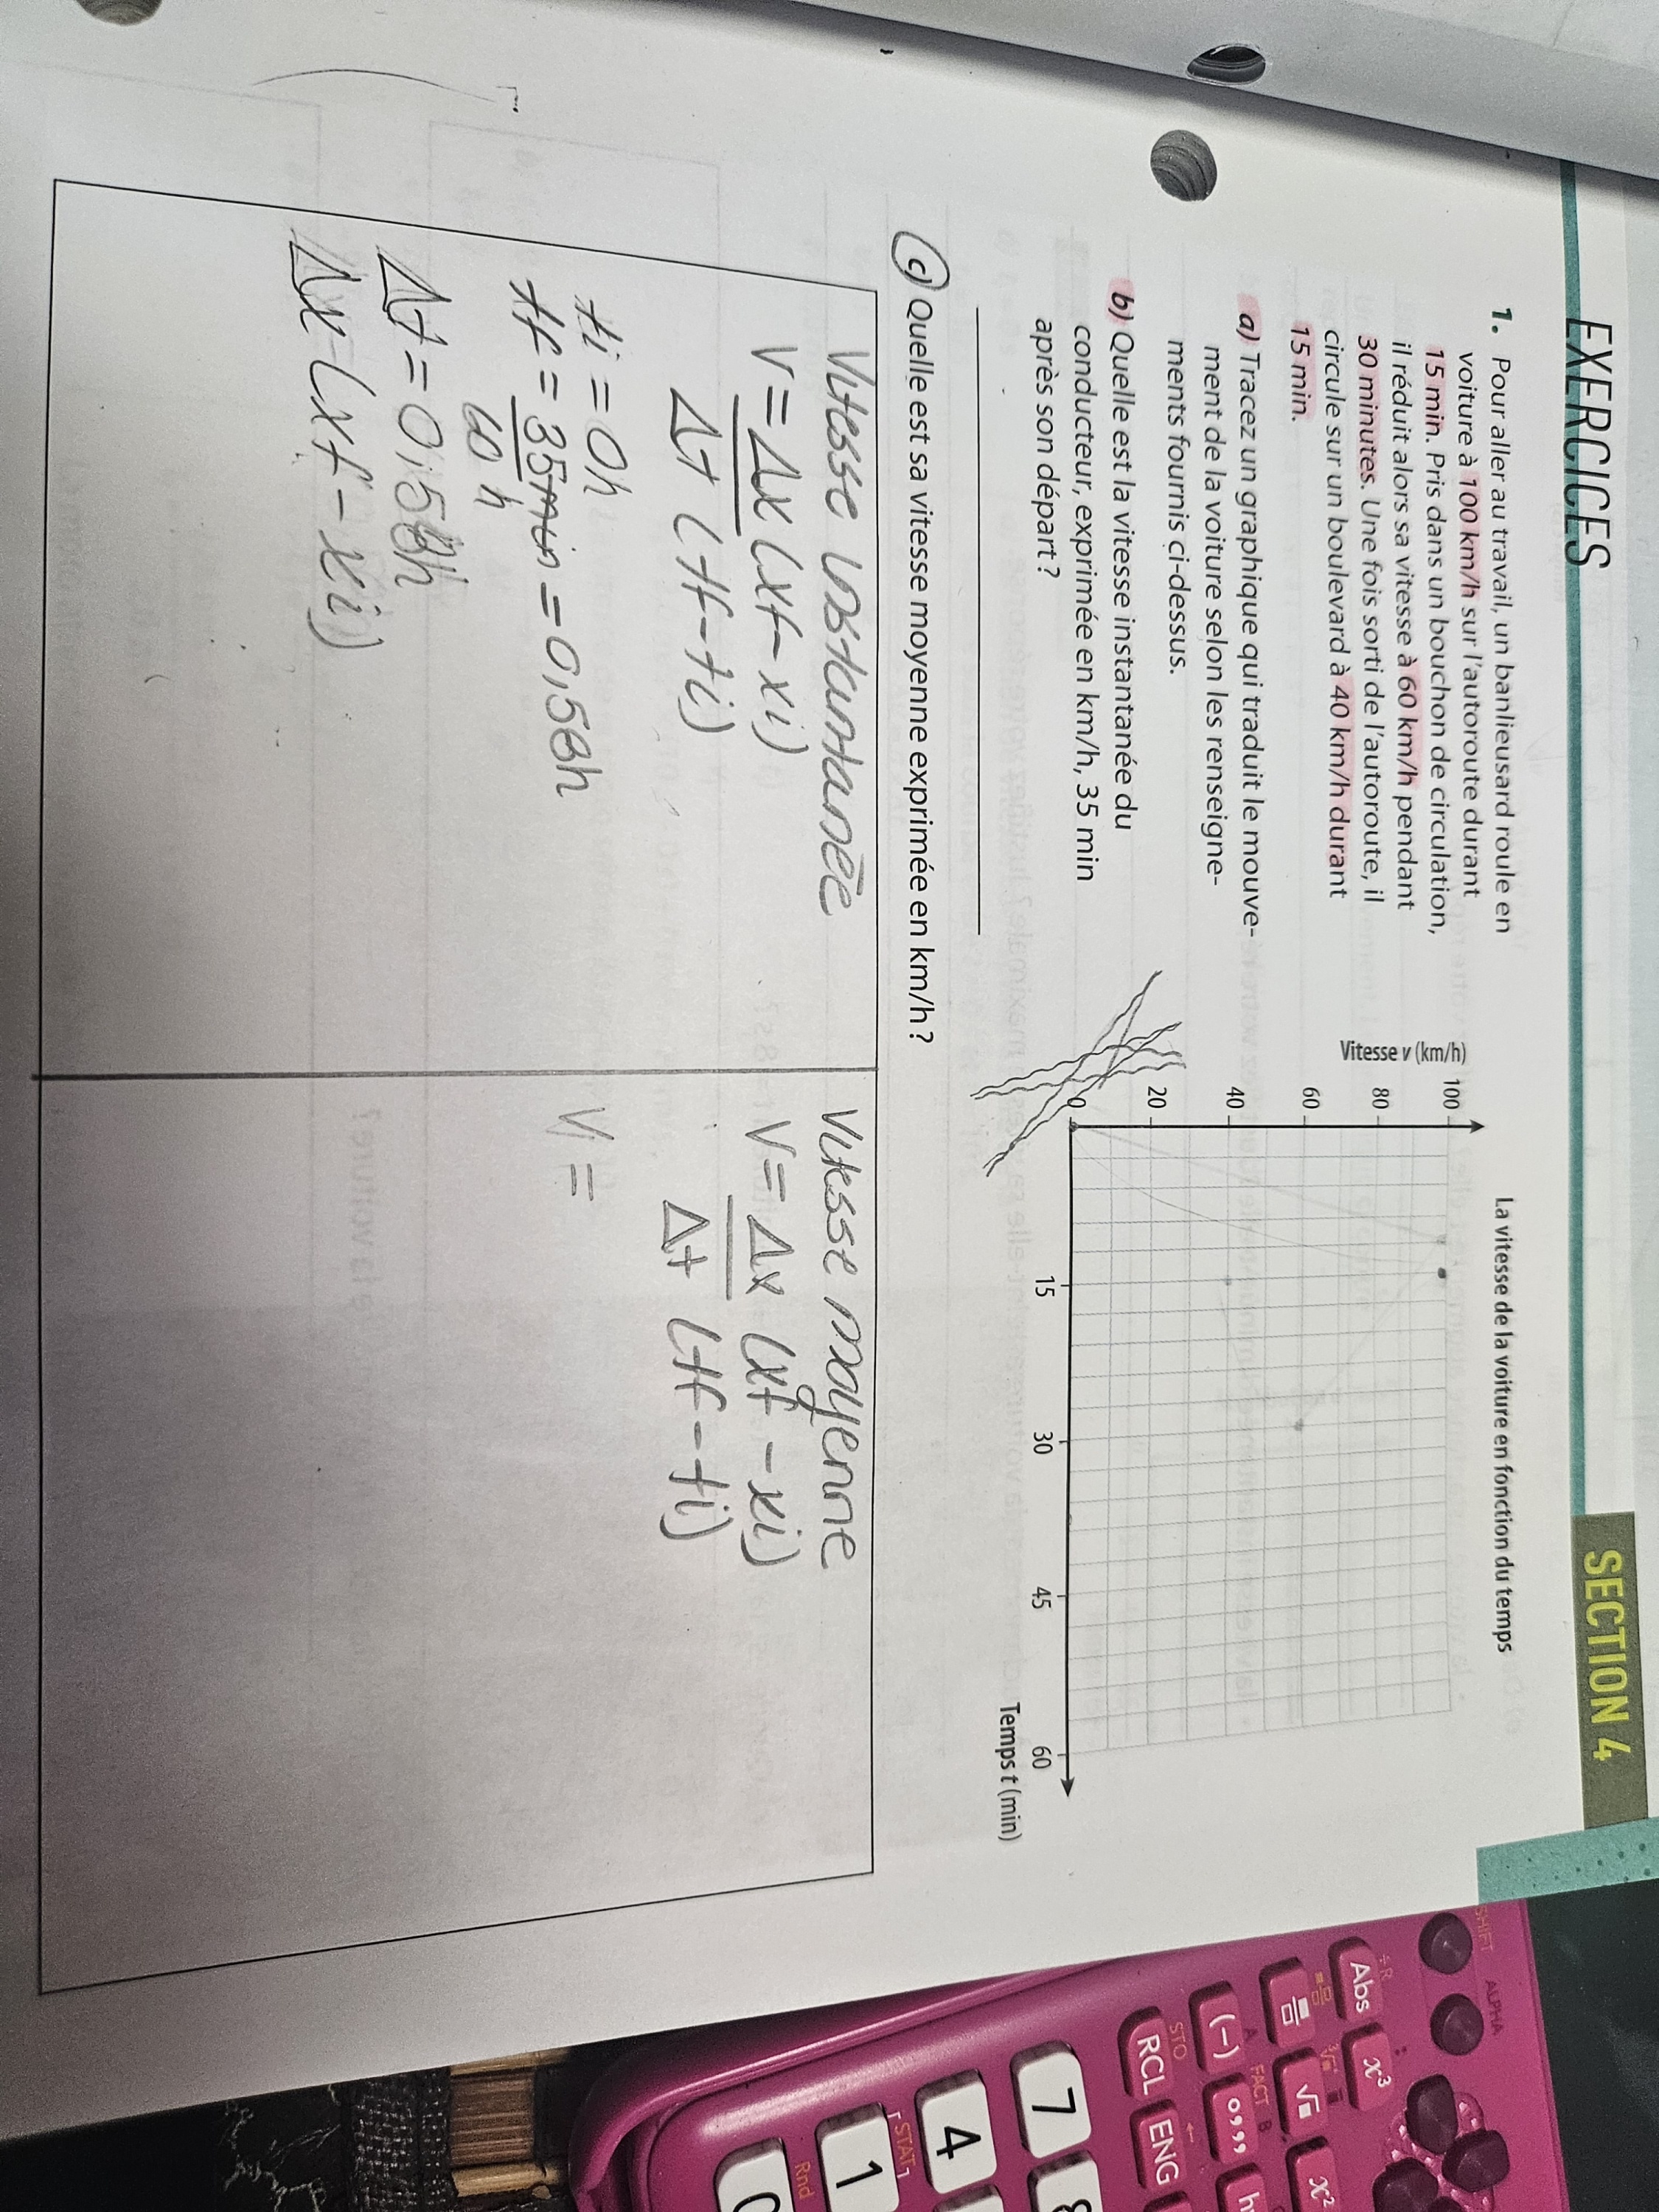 EXERCICES
SECTION 4
1. Pour aller au travail, un banlieusard roule en
voiture à 100 km/h sur l'autoroute durant
15 min. Pris dans un bouchon de circulation,
il réduit alors sa vitesse à 60 km/h pendant
30 minutes. Une fois sorti de l'autoroute, il
circule sur un boulevard à 40 km/h durant
15 min.
a) Tracez un graphique qui traduit le mouve-
ment de la voiture selon les renseigne-
ments fournis ci-dessus.
b) Quelle est la vitesse instantanée du
conducteur, exprimée en km/h, 35 min
après son départ ?
La vitesse de la voiture en fonction du temps
Vitesse v (km/h)
100
80
60
40
20
0
15 30 45 60
Temps t (min)
c) Quelle est sa vitesse moyenne exprimée en km/h ?
Vitesse instantanée
V = Δx (xf - xi)
Δt (tf - ti)
ti = 0h
tf = 35min = 0,58h
60 h
Δt = 0,58h
Δx (xf - xi)
Vitesse moyenne
V = Δx (xf - xi)
Δt (tf - ti)
V =
SHIFT ALPHA
Abs x³
√ x²
(-) °,,, h
STO FACT B
RCL ENG
7 8
4
STAT
1
Rnd
0